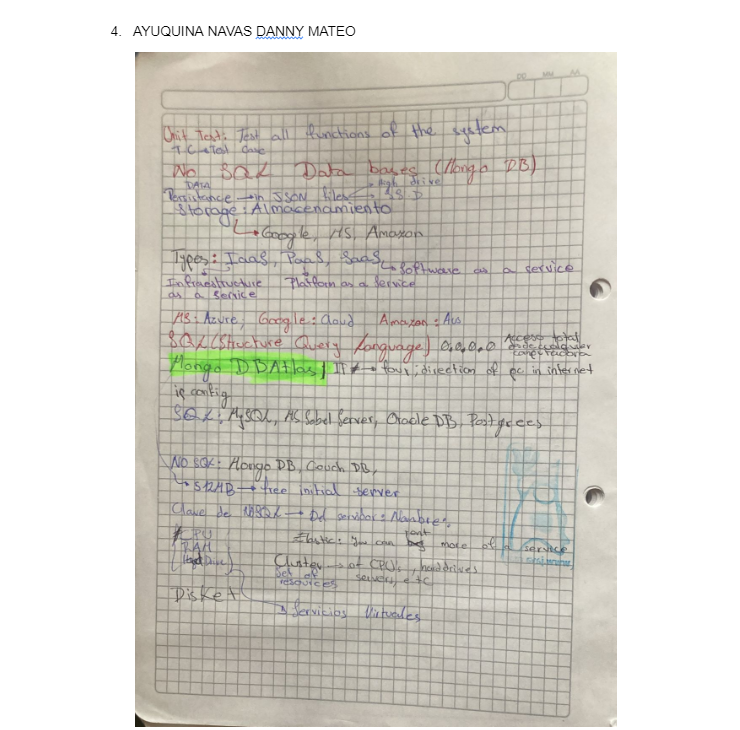 4. AYUQUINA NAVAS DANNY MATEO
DD MM AA
Unit Test: Test all functions of the system
T.C → Test Case
No SQL Data bases (Mongo DB)
DATA → High drive
Persistance → in JSON files → SSD
Storage: Almacenamiento
Google, MS, Amazon
Types: IaaS, PaaS, SaaS → Software as a service
Infraestructure Platform as a Service
as a Service
MS: Azure, Google: Cloud Amazon: Aws
SQL (Structure Query Language) 0.0.0.0 Acceso total
desde cualquier
computadora
Mongo DB Atlas / → direction of pc in internet
ip config
SQL: MySQL, MS Server, Oracle DB, Postgrees
NO SQL: Mongo DB, Couch DB,
512MB → free initial server
Clave de → Del servidor: Nombre
CPU rent
Elastic: you can more of a service
RAM
Hard Drive) Cluster → of CPUs, hard drives
Set of servers, etc
resources
Disket
→ Servicios Virtuales